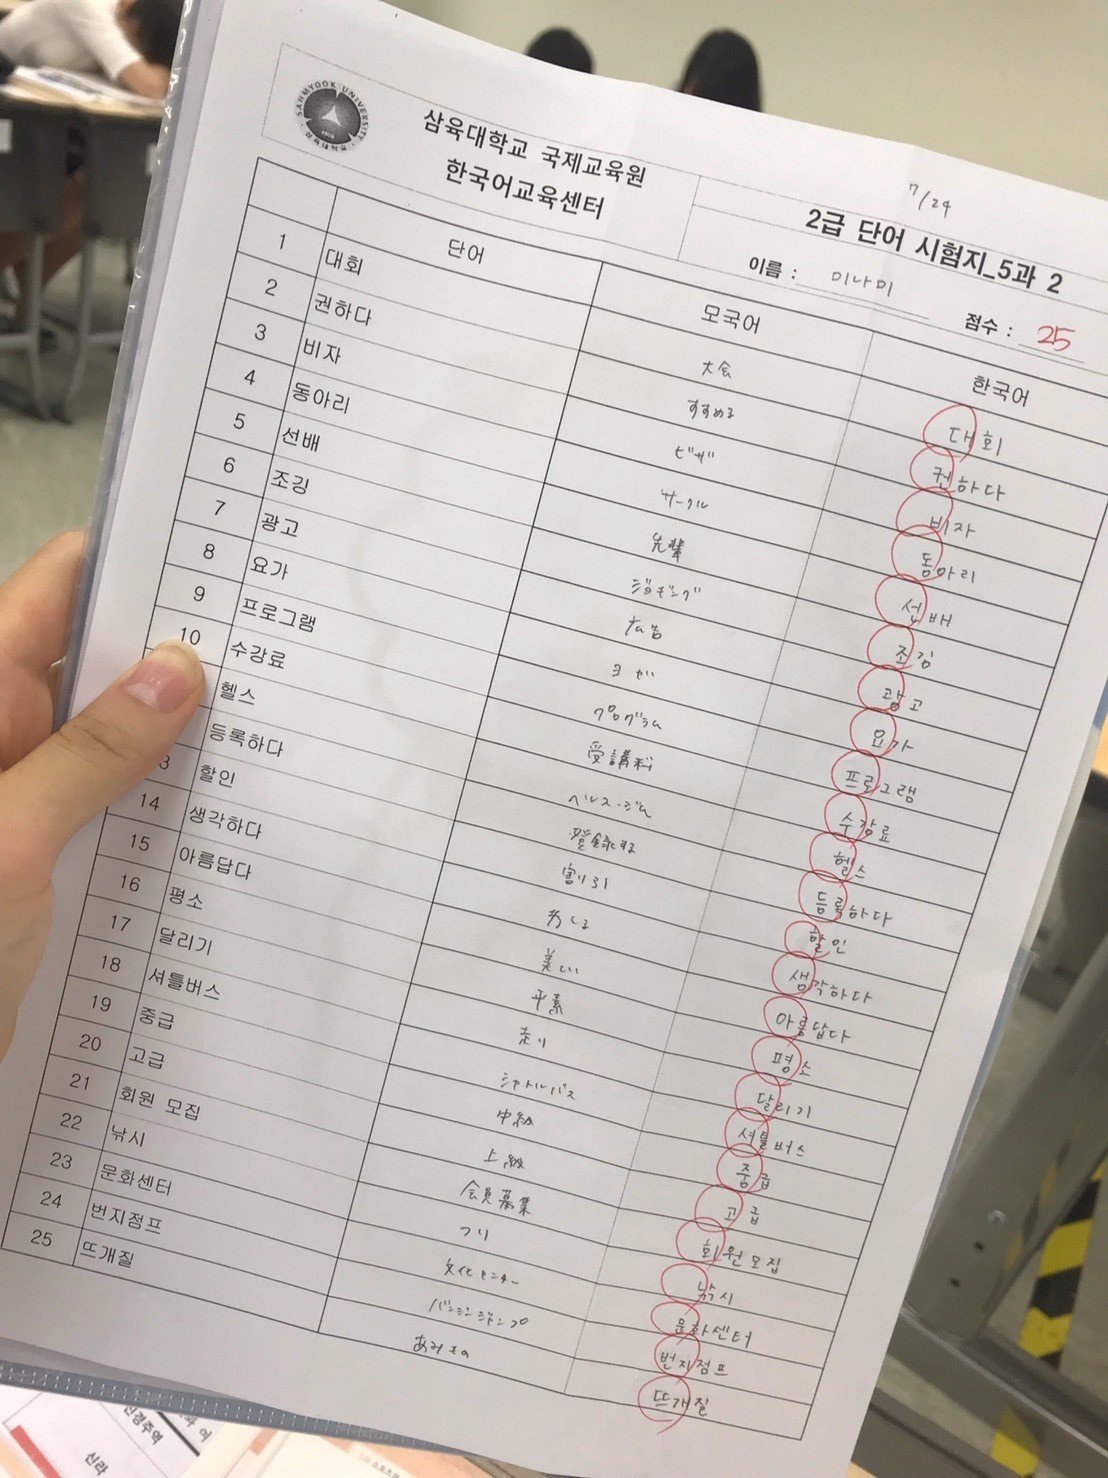 SAHMYOOK UNIVERSITY
1906
삼육대학교
삼육대학교 국제교육원
한국어교육센터
7/24
2급 단어 시험지_5과 2
이름 : 미나미
점수 : 25
단어 모국어 한국어
1 대회 大会 대회
2 권하다 すすめる 권하다
3 비자 ビザ 비자
4 동아리 サークル 동아리
5 선배 先輩 선배
6 조깅 ジョギング 조깅
7 광고 広告 광고
8 요가 ヨガ 요가
9 프로그램 プログラム 프로그램
10 수강료 受講料 수강료
헬스 ヘルス・ジム 헬스
등록하다 登録する 등록하다
3 할인 割り引 할인
14 생각하다 考える 생각하다
15 아름답다 美しい 아름답다
16 평소 平素 평소
17 달리기 走り 달리기
18 셔틀버스 シャトルバス 셔틀버스
19 중급 中級 중급
20 고급 上級 고급
21 회원 모집 会員募集 회원모집
22 낚시 つり 낚시
23 문화센터 文化センター 문화센터
24 번지점프 バンジージャンプ 번지점프
25 뜨개질 あみもの 뜨개질
신경주역
신라